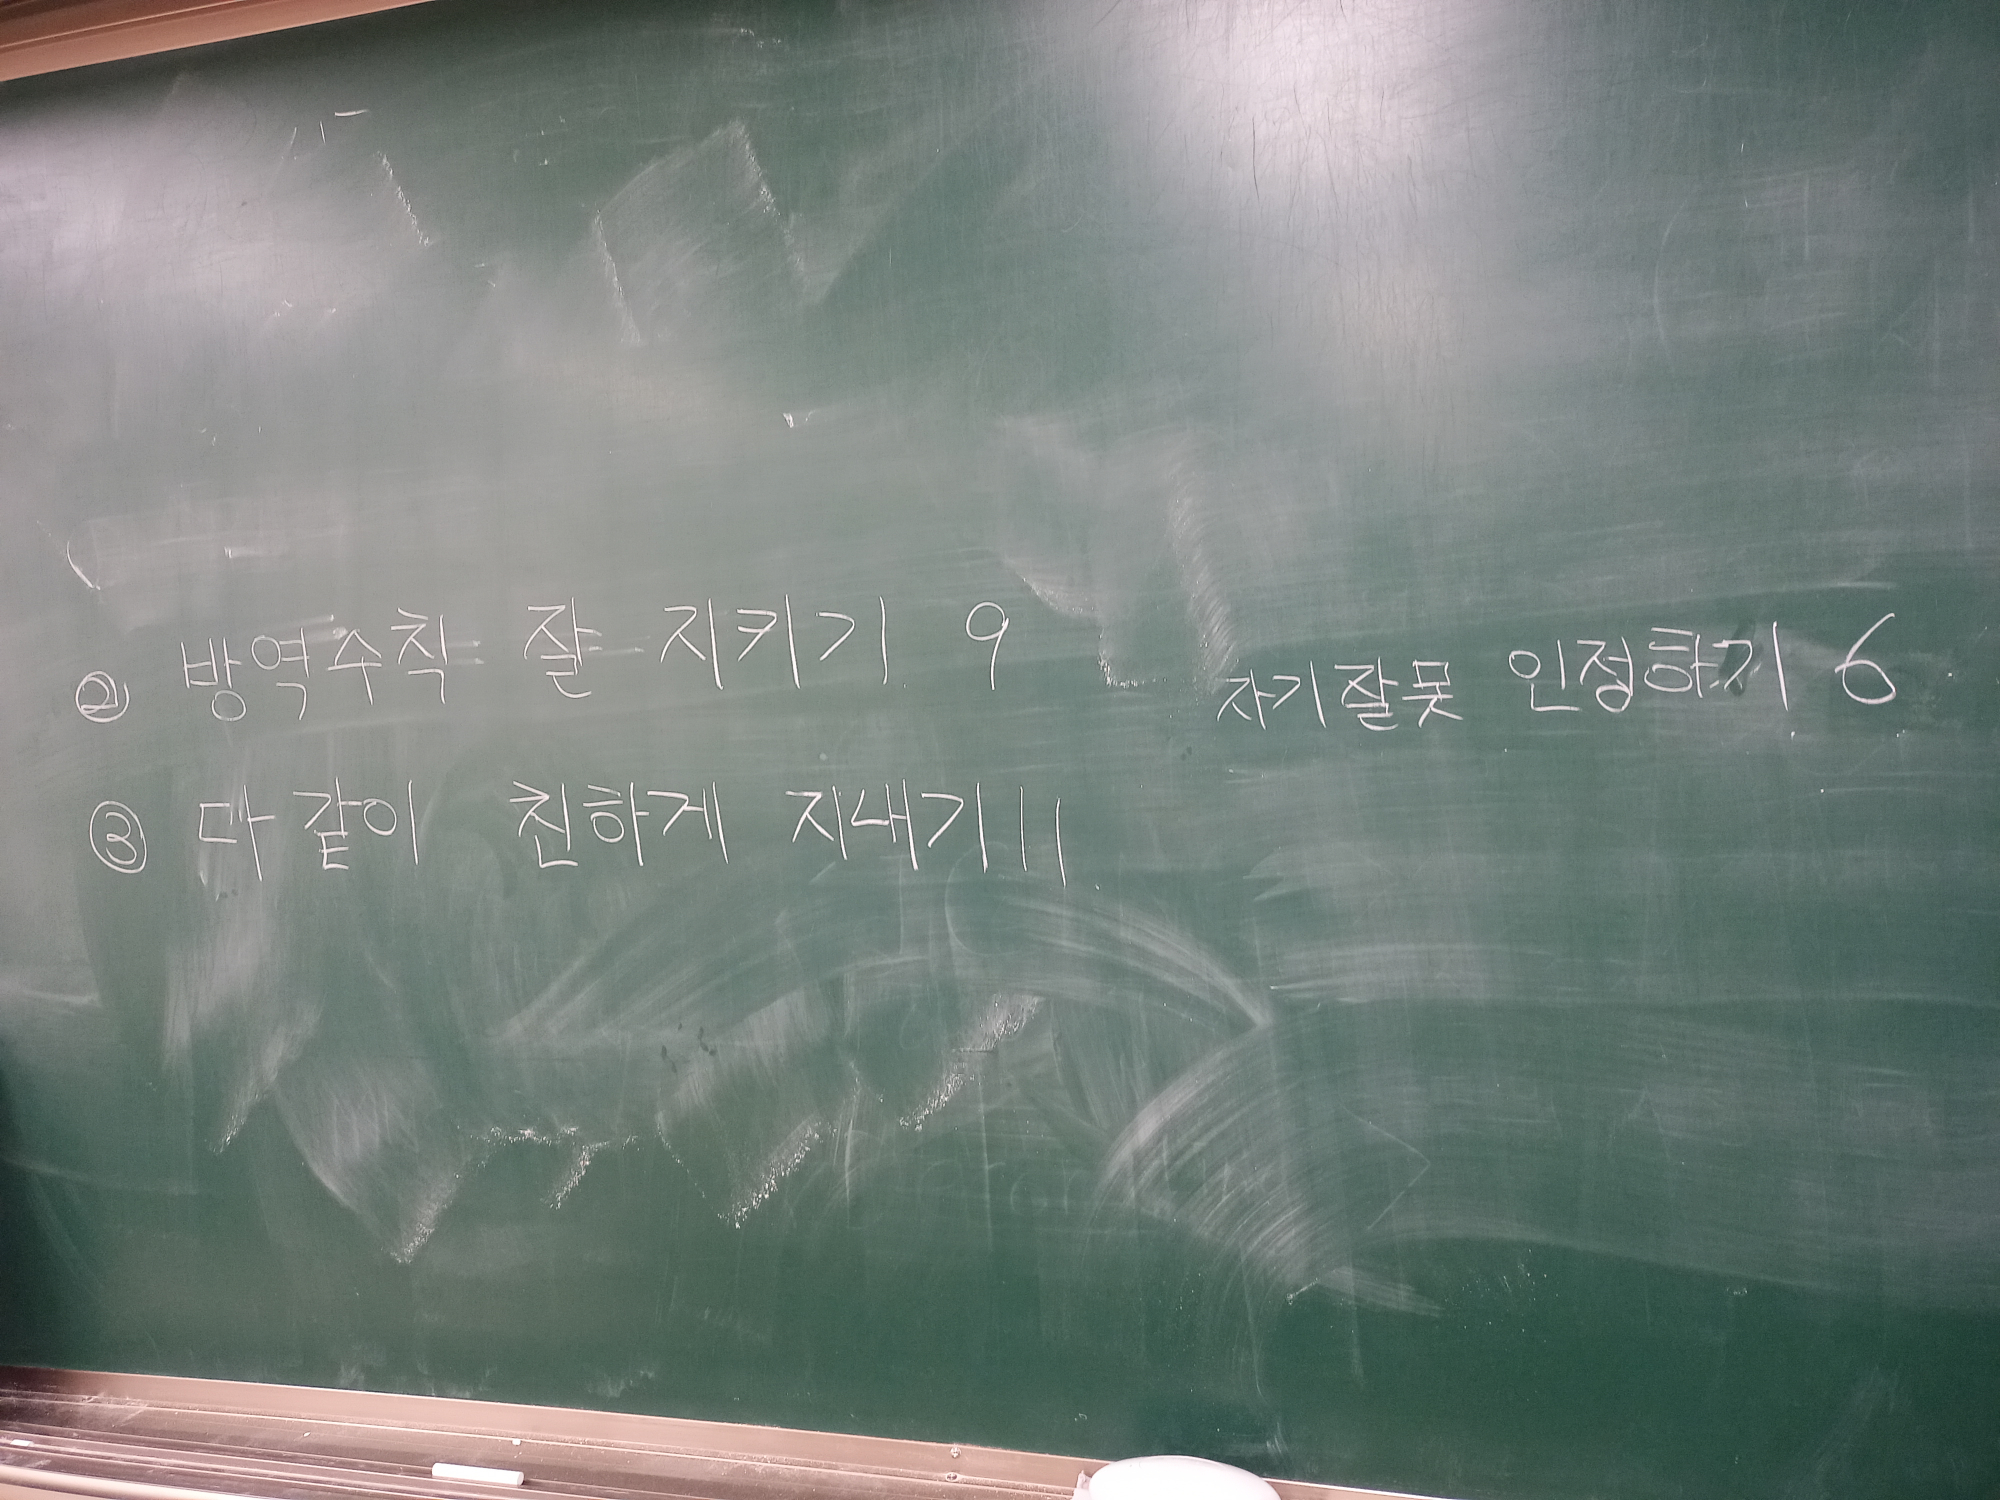 ② 방역수착 잘 지키기 9
자기잘못 인정하기 6
③ 다같이 친하게 지내기 11